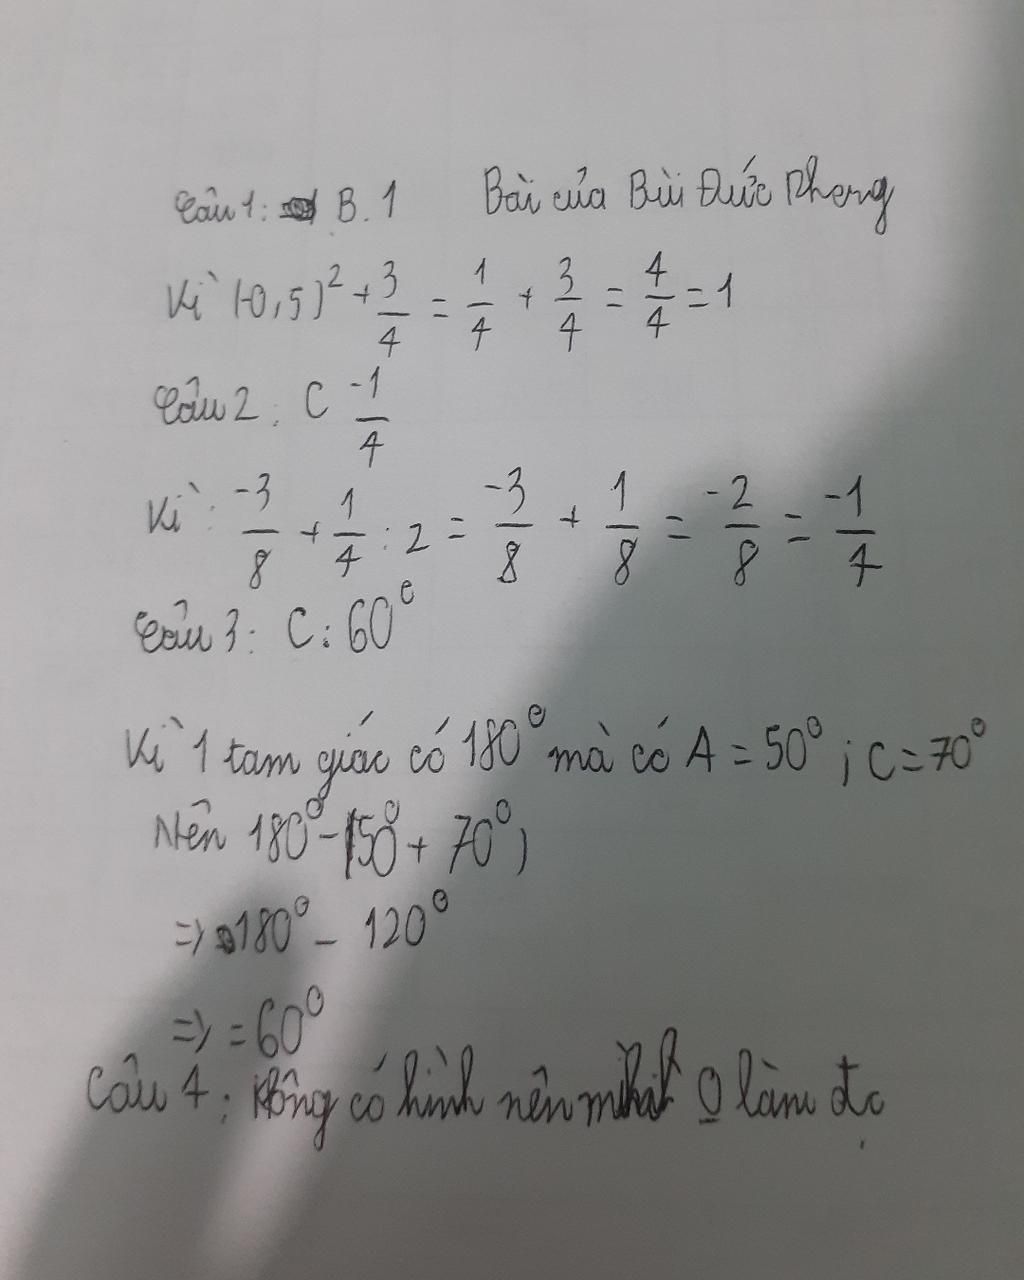 Câu 1: B. 1 Bài của Bùi Đức Phong
Vì (-0,5)² + 3/4 = 1/4 + 3/4 = 4/4 = 1
Câu 2: C -1/4
Vì: -3/8 + 1/4 : 2 = -3/8 + 1/8 = -2/8 = -1/4
Câu 3: C: 60°
Vì 1 tam giác có 180° mà có A = 50° ; C = 70°
Nên 180° - (50° + 70°)
=> 180° - 120°
=> = 60°
Câu 4: Không có hình nên O làm đc